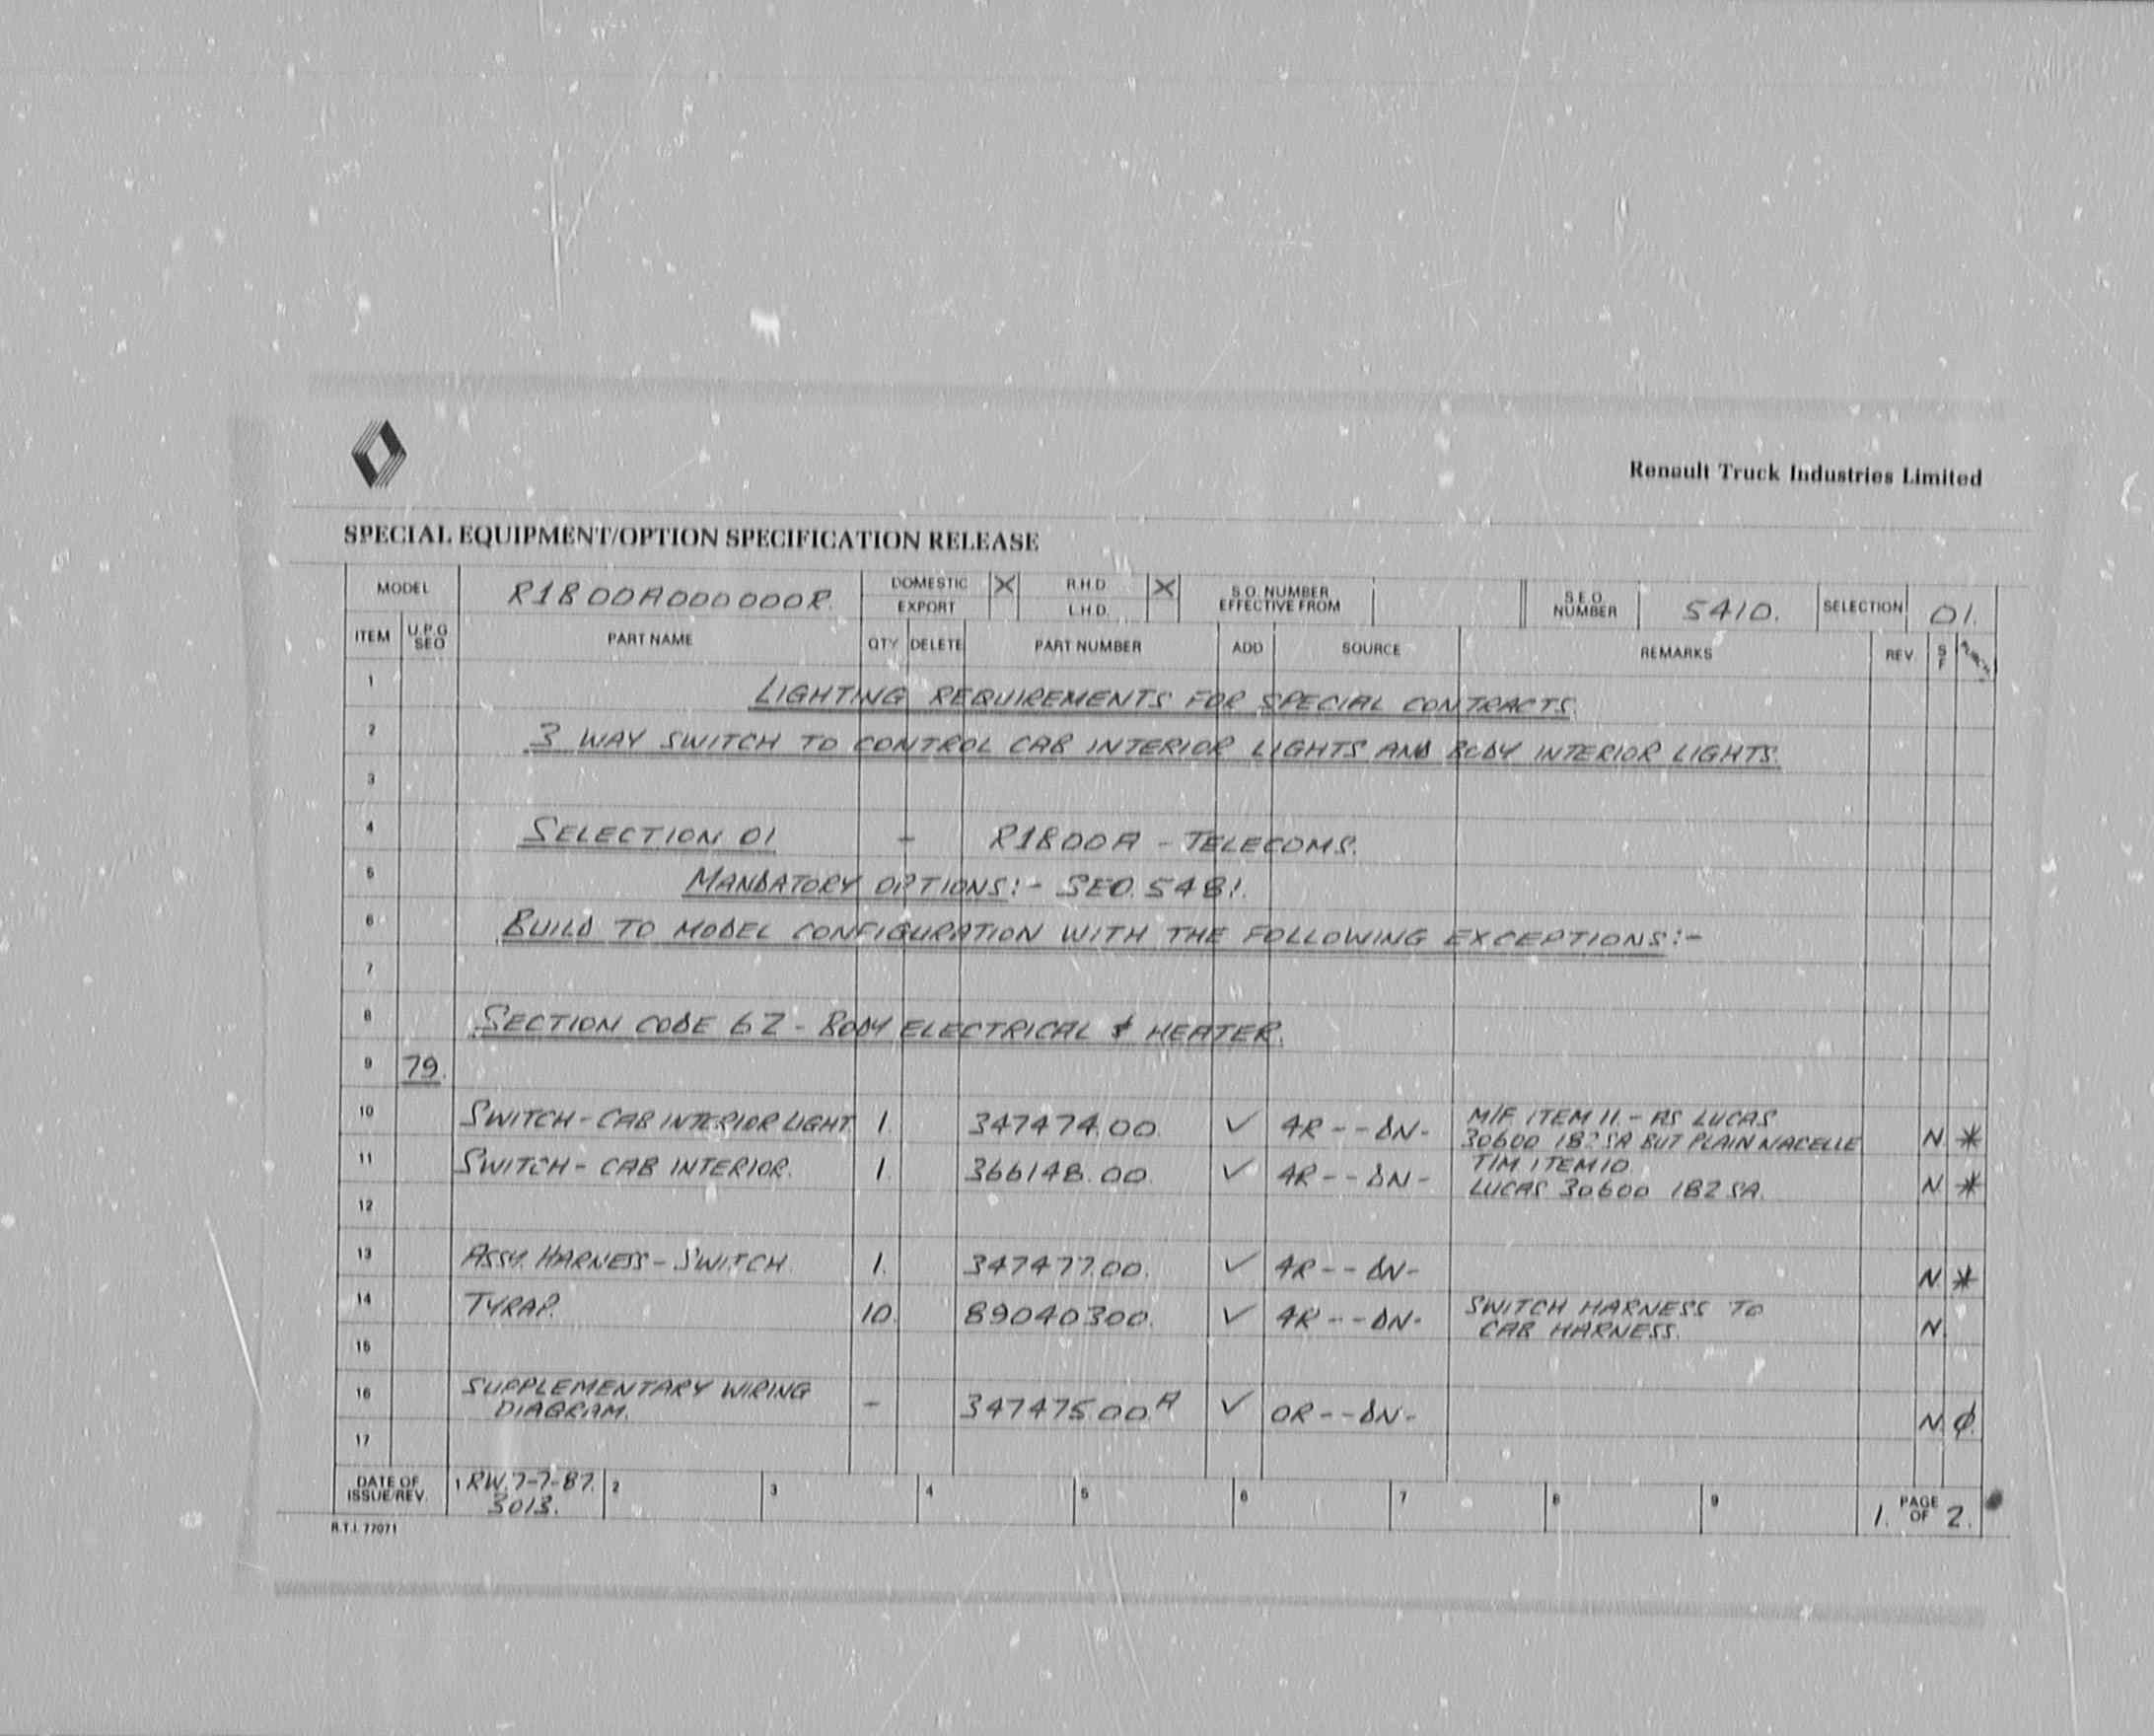 Renault Truck Industries Limited
SPECIAL EQUIPMENT/OPTION SPECIFICATION RELEASE
MODEL R1800A000000R. DOMESTIC X R.H.D X S.O. NUMBER EFFECTIVE FROM S.E.O. NUMBER 5410. SELECTION 01.
EXPORT L.H.D.
ITEM U.P.G SEQ PART NAME QTY DELETE PART NUMBER ADD SOURCE REMARKS REV. S F
1 LIGHTING REQUIREMENTS FOR SPECIAL CONTRACTS.
2 3 WAY SWITCH TO CONTROL CAB INTERIOR LIGHTS AND BODY INTERIOR LIGHTS.
3
4 SELECTION 01 - R1800A - TELECOMS.
5 MANDATORY OPTIONS:- SEO. 5481.
6 BUILD TO MODEL CONFIGURATION WITH THE FOLLOWING EXCEPTIONS:-
7
8 SECTION CODE 62 - BODY ELECTRICAL & HEATER.
9 79.
10 SWITCH - CAB INTERIOR LIGHT 1. 347474.00. ✓ 4R - - DN - M/F ITEM 11. - AS LUCAS
30600 182 SA BUT PLAIN NACELLE N *
11 SWITCH - CAB INTERIOR. 1. 366148.00. ✓ 4R - - DN - T/M ITEM 10.
LUCAS 30600 182 SA. N *
12
13 ASSY. HARNESS - SWITCH. 1. 347477.00. ✓ 4R - - DN - N *
14 TYRAP. 10. 89040300. ✓ 4R - - DN - SWITCH HARNESS TO
CAB HARNESS. N
15
16 SUPPLEMENTARY WIRING
DIAGRAM. - 347475.00.A ✓ 0R - - DN - N φ
17
DATE OF ISSUE/REV. 1 RW. 7-7-87. 2 3 4 5 6 7 8 9 1. PAGE OF 2.
3013.
R.T.I. 77071